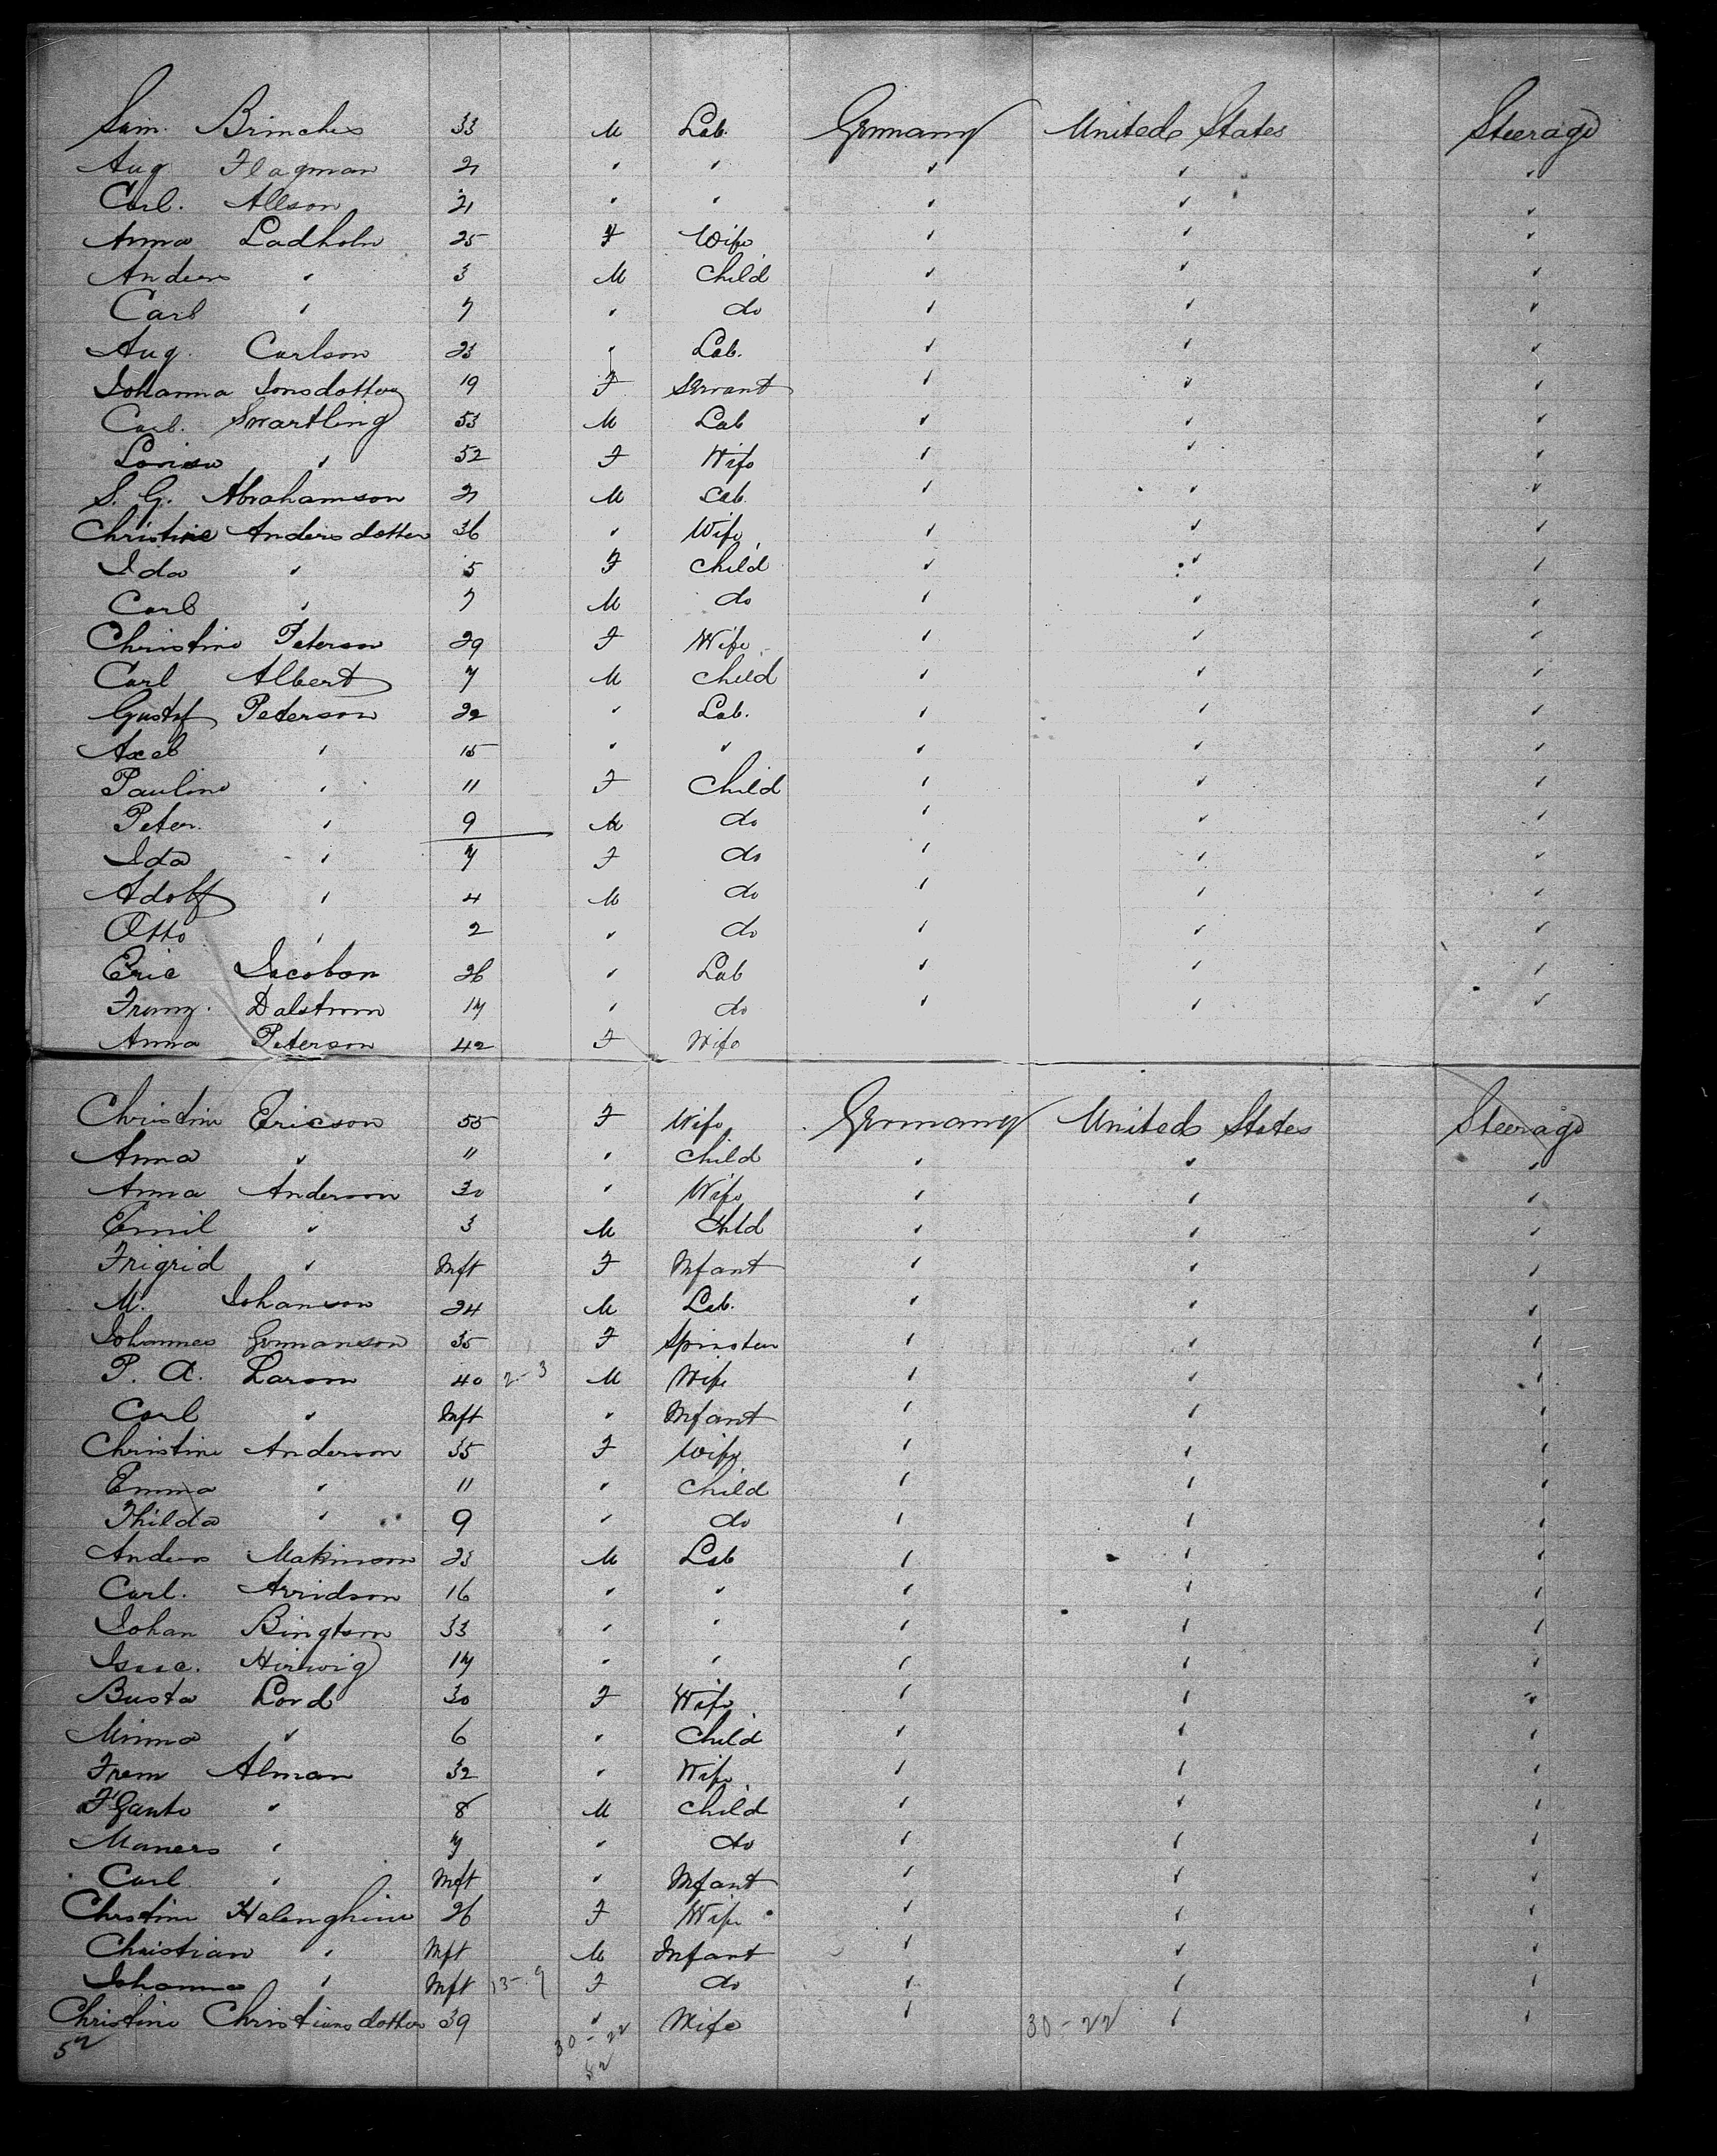 Sam. Brinches 33 M Lab. Germany United States Steerage
Aug Flagman 21 " " " " "
Carl. Allson 21 " " " " "
Anna Ladholm 25 F Wife " " "
Anders " 3 M Child " " "
Carl " 7 " do " " "
Aug. Carlson 23 " Lab. " " "
Johanna Jonsdotter 19 F Servant " " "
Carl. Swartling 53 M Lab " " "
Lovisa " 52 F Wife " " "
S. G. Abrahamson 21 M Lab. " " "
Christine Andersdotter 36 " Wife " " "
Ida " 5 F Child " " "
Carl " 7 M do " " "
Christine Peterson 29 F Wife " " "
Carl Albert 7 M Child " " "
Gustaf Peterson 22 " Lab. " " "
Axel " 15 " " " " "
Pauline " 11 F Child " " "
Peter. " 9 M do " " "
Ida " 7 F do " " "
Adolf " 4 M do " " "
Otto " 2 " do " " "
Eric Jacobson 26 " Lab " " "
Franz. Dalstrom 17 " do " " "
Anna Peterson 42 F Wife
Christine Ericson 55 F Wife Germany United States Steerage
Anna " 11 " Child " " "
Anna Anderson 30 " Wife " " "
Emil " 3 M Child " " "
Frigrid " Inft F Infant " " "
M. Johanson 24 M Lab. " " "
Johannes Germanson 35 F Spinster " " "
P. A. Larson 40 2-3 M Wife " " "
Carl " Inft " Infant " " "
Christine Anderson 35 F Wife " " "
Emma " 11 " Child " " "
Thilda " 9 " do " " "
Anders Makinson 23 M Lab " " "
Carl. Arvidson 16 " " " " "
Johan Bingtson 33 " " " " "
Isaac. Hirwig 17 " " " " "
Busta Lord 30 F Wife " " "
Minna " 6 " Child " " "
Frem Alman 32 " Wife " " "
" 8 M Child " " "
Maners " 7 " do " " "
Carl " Inft " Infant " " "
Christine Halenghine 26 F Wife " " "
Christian " Inft M Infant " " "
Johanna " Inft 13-9 F do " " "
Christine Christiansdotter 39 " Wife " 30-22 " "
52 30-22
52